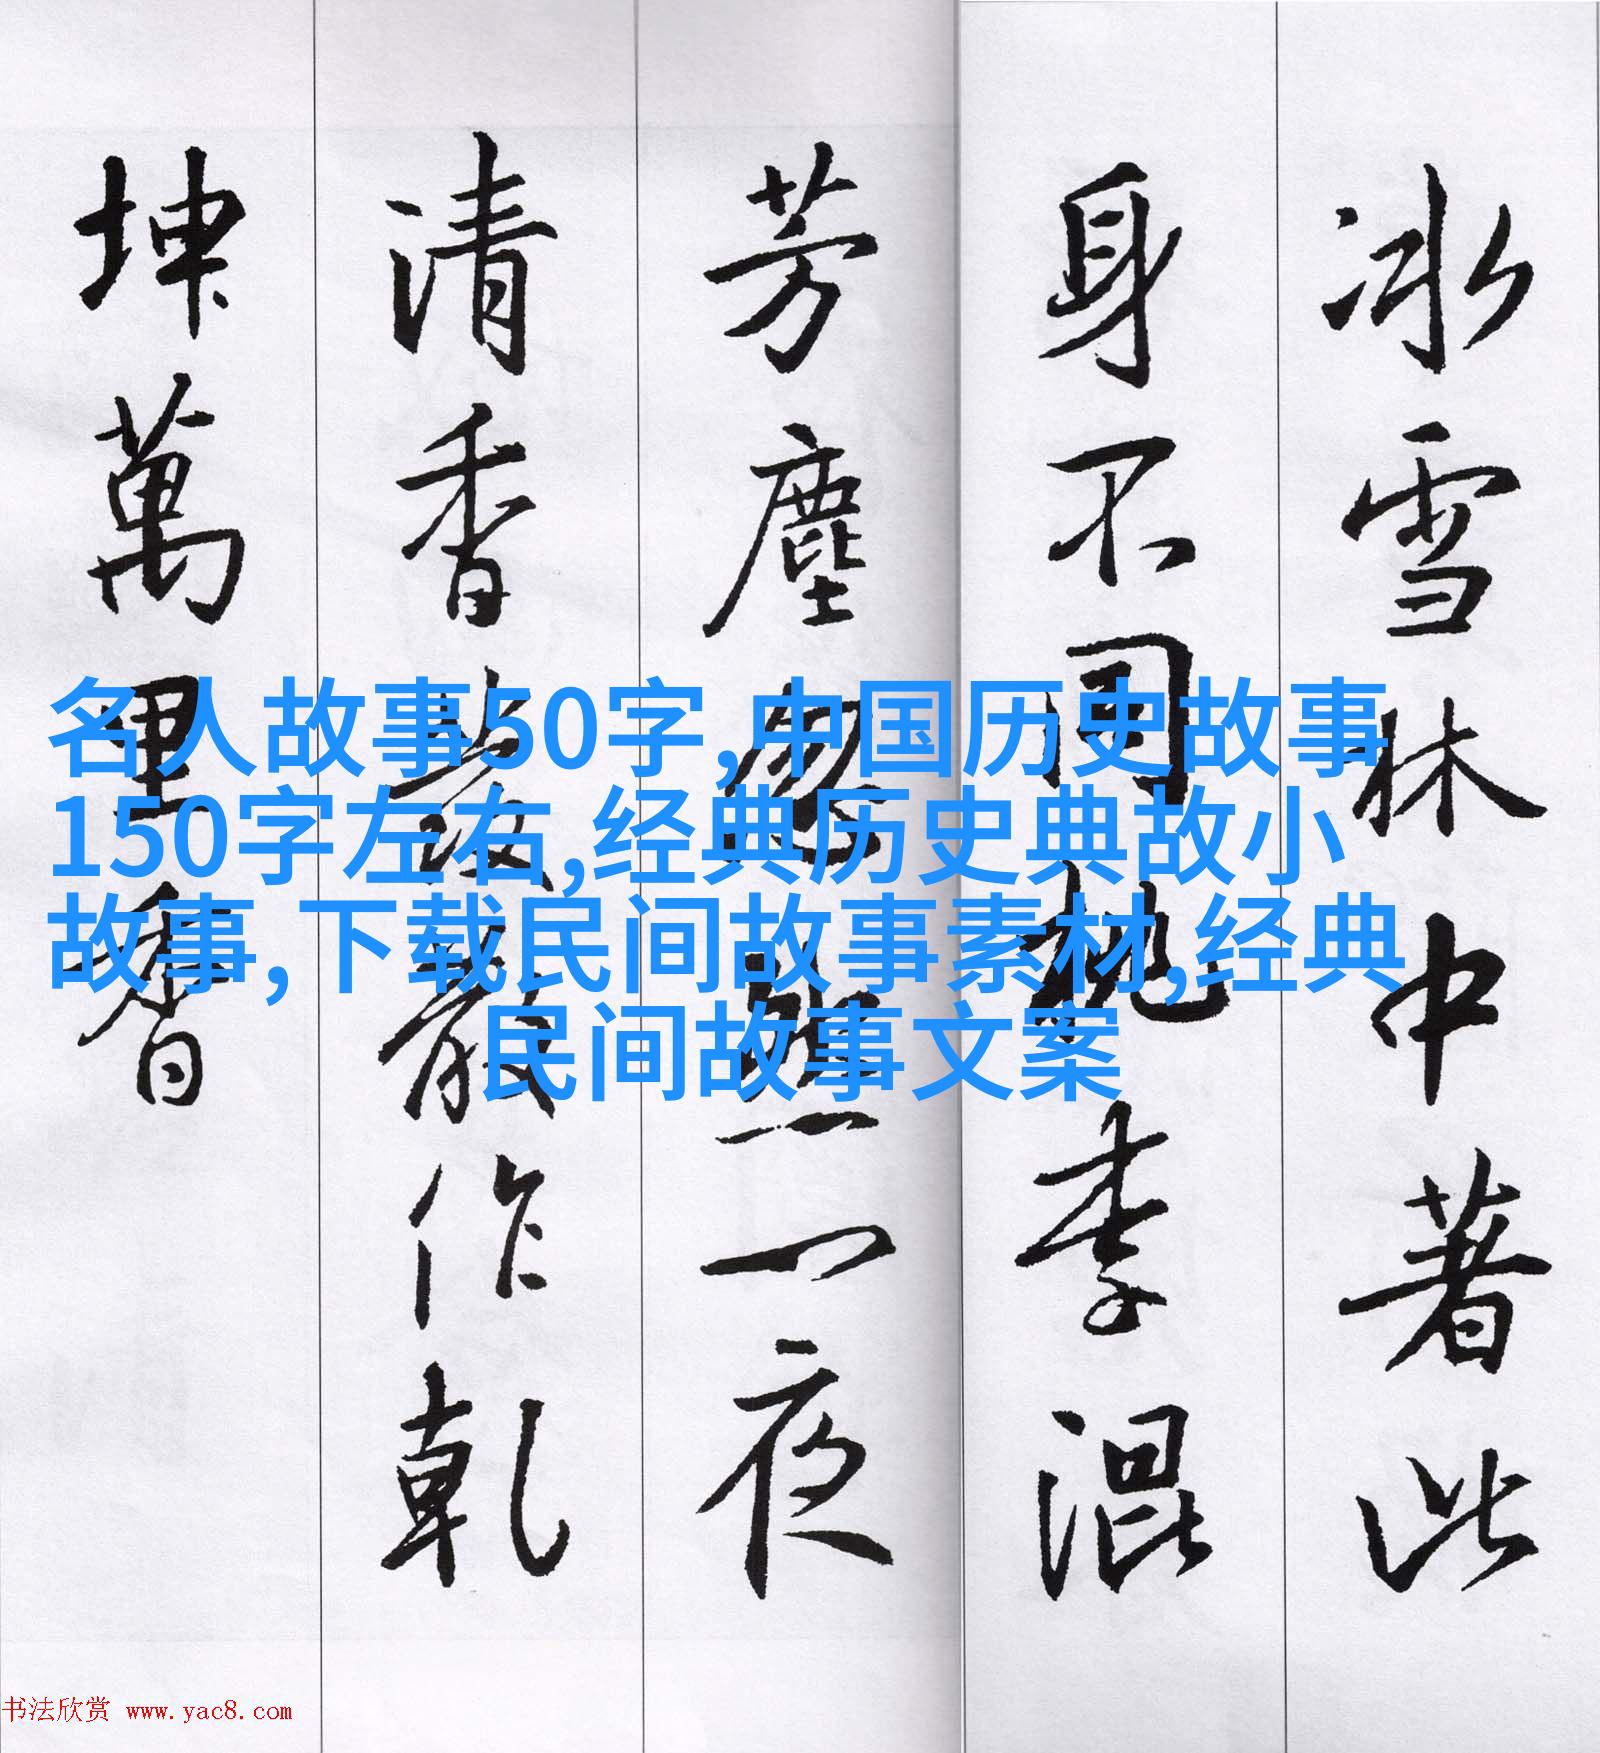 冰雪林中著此
身不同桃李混
芳塵忽然一夜
清香發散作乾
坤萬里
名人故事50字,中国历史故事
150字左右,经典历史典故小
故事,下载民间故事素材,经典
民间故事文案
书法欣赏 www.yac8.com